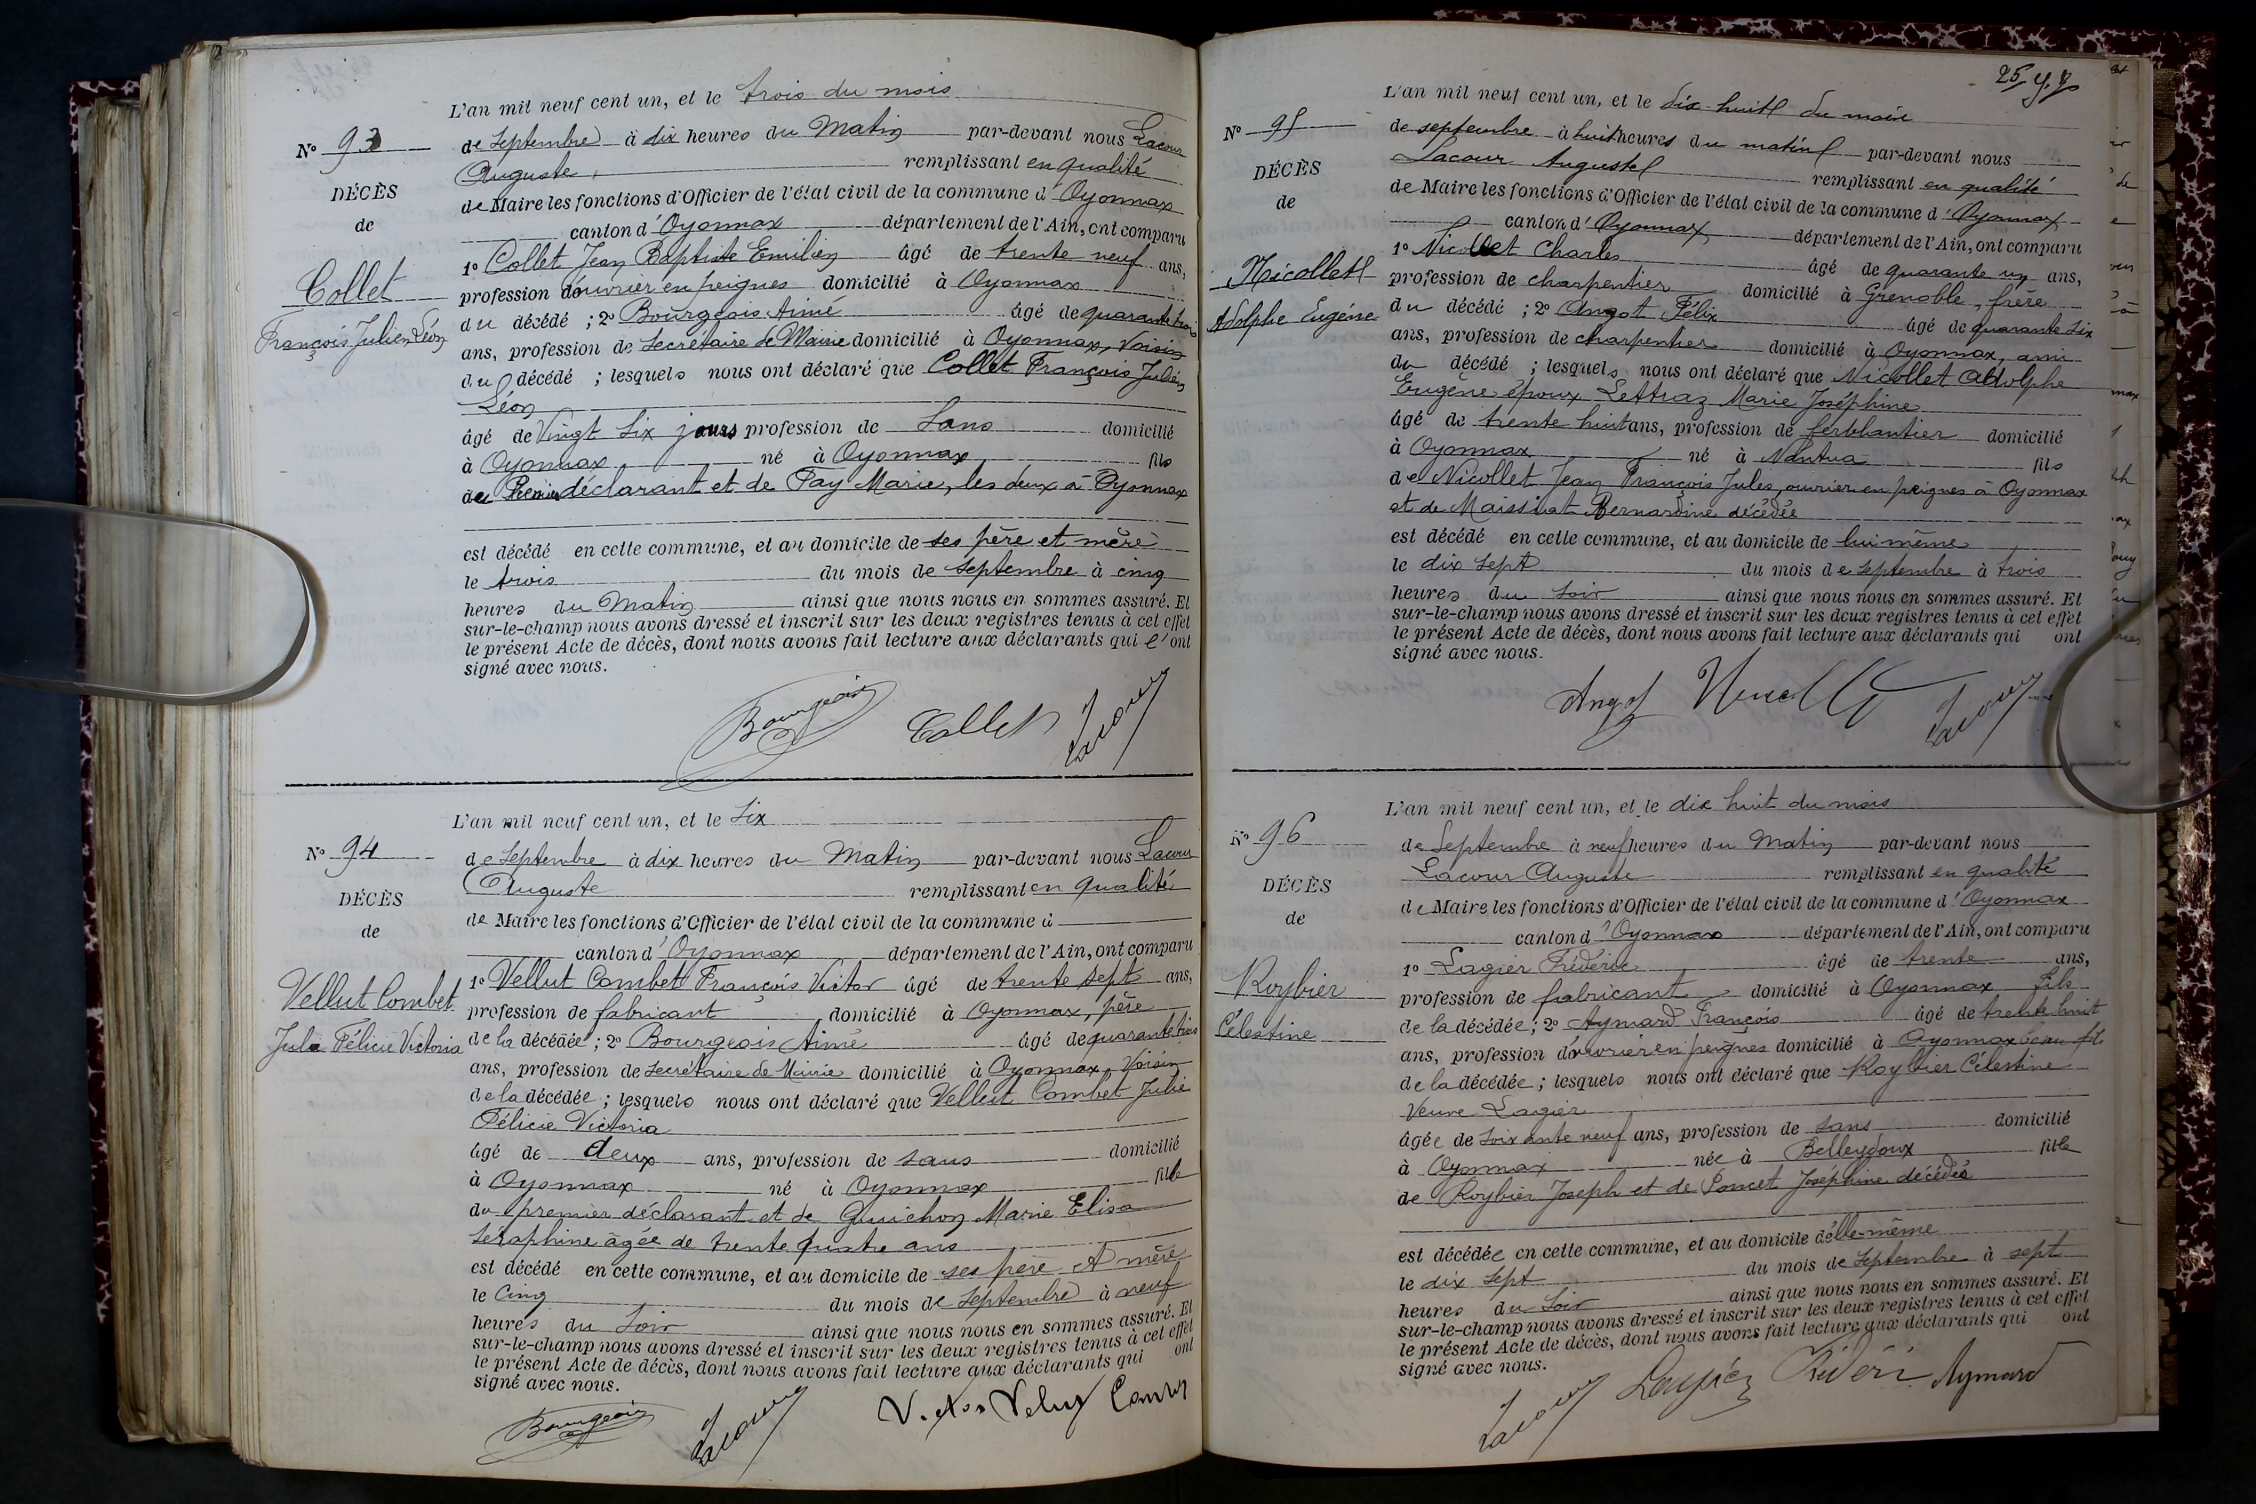 L'an mil neuf cent un, et le trois du mois
N° 93
de Septembre à dix heures du Matin par-devant nous Lacour
Auguste, remplissant en qualité
DÉCÈS
de Maire les fonctions d'Officier de l'état civil de la commune d'Oyonnax
de
canton d'Oyonnax département de l'Ain, ont comparu
1° Collet Jean Baptiste Emilien âgé de trente neuf ans,
Collet
profession d'ouvrier en peignes domicilié à Oyonnax
François Julien Léon
du décédé ; 2° Bourgeois Aimé âgé de quarante trois
ans, profession de Secrétaire de Mairie domicilié à Oyonnax, Voisin
du décédé ; lesquels nous ont déclaré que Collet François Julien
Léon
âgé de Vingt Six jours profession de Sans domicilié
à Oyonnax né à Oyonnax fils
du Premier déclarant et de Pay Marie, les deux à Oyonnax
est décédé en cette commune, et au domicile de ses père et mère
le trois du mois de Septembre à cinq
heures du Matin ainsi que nous nous en sommes assuré. Et
sur-le-champ nous avons dressé et inscrit sur les deux registres tenus à cet effet
le présent Acte de décès, dont nous avons fait lecture aux déclarants qui l'ont
signé avec nous.
Bourgeois Collet Lacour
L'an mil neuf cent un, et le Six
N° 94
de Septembre à dix heures du Matin par-devant nous Lacour
Auguste remplissant en qualité
DÉCÈS
de Maire les fonctions d'Officier de l'état civil de la commune d
de
canton d'Oyonnax département de l'Ain, ont comparu
1° Vellut Combet François Victor âgé de trente sept ans,
Vellut Combet
profession de fabricant domicilié à Oyonnax, père
Julie Félicie Victoria
de la décédée ; 2° Bourgeois Aimé âgé de quarante trois
ans, profession de Secrétaire de Mairie domicilié à Oyonnax, Voisin
de la décédée ; lesquels nous ont déclaré que Vellut Combet Julie
Félicie Victoria
âgé de deux ans, profession de sans domicilié
à Oyonnax né à Oyonnax fille
du premier déclarant et de Guichon Marie Elisa
Séraphine âgée de trente quatre ans
est décédé en cette commune, et au domicile de ses père et mère
le Cinq du mois de Septembre à neuf
heures du Soir ainsi que nous nous en sommes assuré. Et
sur-le-champ nous avons dressé et inscrit sur les deux registres tenus à cet effet
le présent Acte de décès, dont nous avons fait lecture aux déclarants qui ont
signé avec nous.
Bourgeois Lacour Victor Velut Combet
25
L'an mil neuf cent un, et le dix huit du mois
N° 95
de septembre à huit heures du matin par-devant nous
Lacour Auguste remplissant en qualité
DÉCÈS
de Maire les fonctions d'Officier de l'état civil de la commune d'Oyonnax
de
canton d'Oyonnax département de l'Ain, ont comparu
1° Nicollet Charles âgé de quarante un ans,
Nicollet
profession de charpentier domicilié à Grenoble, frère
Adolphe Eugène
du décédé ; 2° Angot Félix âgé de quarante six
ans, profession de charpentier domicilié à Oyonnax, ami
du décédé ; lesquels nous ont déclaré que Nicollet Adolphe
Eugène époux Lettraz Marie Joséphine
âgé de trente huit ans, profession de ferblantier domicilié
à Oyonnax né à Nantua fils
de Nicollet Jean François Jules, ouvrier en peignes à Oyonnax
et de Maissiat Bernardine décédée
est décédé en cette commune, et au domicile de lui même
le dix sept du mois de septembre à trois
heures du soir ainsi que nous nous en sommes assuré. Et
sur-le-champ nous avons dressé et inscrit sur les deux registres tenus à cet effet
le présent Acte de décès, dont nous avons fait lecture aux déclarants qui ont
signé avec nous.
Angot Lacour
L'an mil neuf cent un, et le dix huit du mois
N° 96
de Septembre à neuf heures du Matin par-devant nous
Lacour Auguste remplissant en qualité
DÉCÈS
de Maire les fonctions d'Officier de l'état civil de la commune d'Oyonnax
de
canton d'Oyonnax département de l'Ain, ont comparu
1° Lagier Frédéric âgé de trente ans,
Roybier
profession de fabricant domicilié à Oyonnax fils
Célestine
de la décédée ; 2° Aymard François âgé de trente huit
ans, profession d'ouvrier en peignes domicilié à Oyonnax beau fils
de la décédée ; lesquels nous ont déclaré que Roybier Célestine
Veuve Lagier
âgée de soixante neuf ans, profession de sans domicilié
à Oyonnax née à Belleydoux fille
de Roybier Joseph et de Poncet Joséphine décédés
est décédée en cette commune, et au domicile d'elle-même
le dix sept du mois de Septembre à sept
heures du Soir ainsi que nous nous en sommes assuré. Et
sur-le-champ nous avons dressé et inscrit sur les deux registres tenus à cet effet
le présent Acte de décès, dont nous avons fait lecture aux déclarants qui ont
signé avec nous.
Lacour Aymard